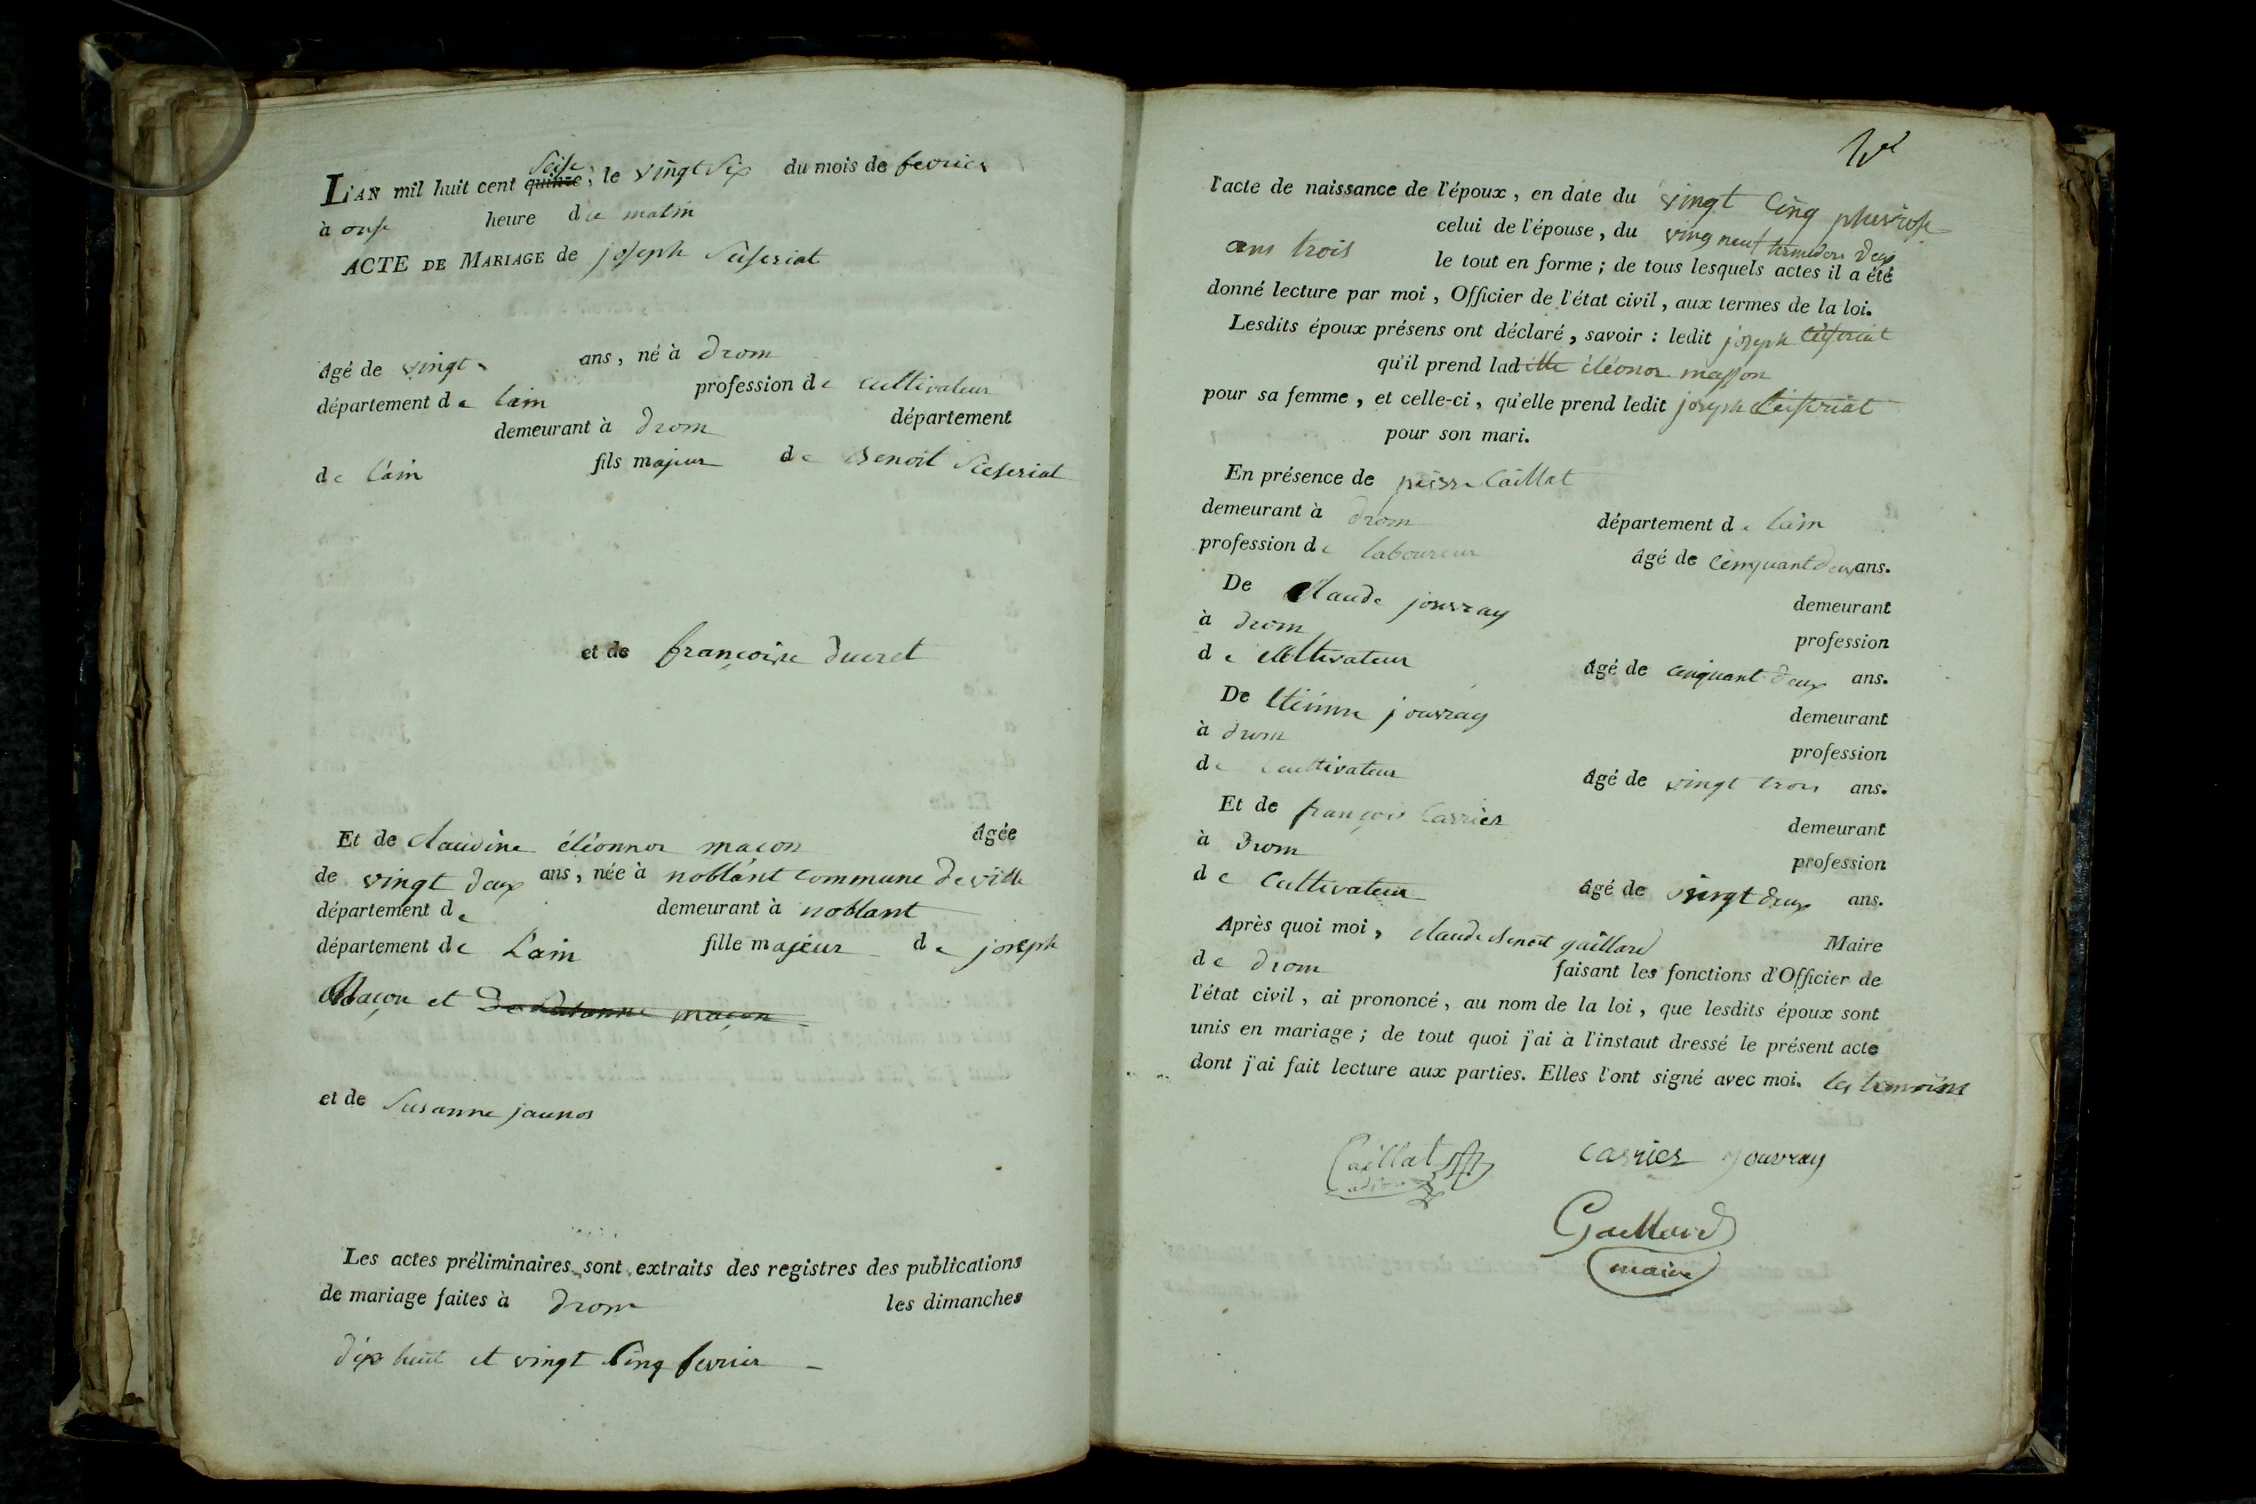 L'AN mil huit cent quinze seise, le vingt six du mois de fevrier
à onse heure du matin
ACTE DE MARIAGE de joseph Seiseriat
âgé de vingt ans, né à drom
département de lain profession de cultivateur
demeurant à drom département
de lain fils majeur de Benoit Sieseriat
et de françoise ducret
Et de claudine éléonnor maçon âgée
de vingt deux ans, née à noblant commune de ville
département de demeurant à noblant
département de Lain fille majeur de joseph
Maçon et
et de Susanne jaunos
Les actes préliminaires sont extraits des registres des publications
de mariage faites à drom les dimanches
dix huit et vingt Cinq fevrier
l'acte de naissance de l'époux, en date du vingt Cinq pluviose
ans trois celui de l'épouse, du ving neuf termidore deux
le tout en forme; de tous lesquels actes il a été
donné lecture par moi, Officier de l'état civil, aux termes de la loi.
Lesdits époux présens ont déclaré, savoir: ledit joseph Ceiseriat
qu'il prend laditte éléonor masson
pour sa femme, et celle-ci, qu'elle prend ledit joseph Ceiseriat
pour son mari.
En présence de pierre Caillat
demeurant à drom département de lain
profession de laboureur âgé de Cinquant deux ans.
De Claude jouvray demeurant
à drom profession
de Cultivateur âgé de cinquant deux ans.
De Etienne jouvray demeurant
à drom profession
de Cultivateur âgé de vingt trois ans.
Et de françois Carrier demeurant
à Drom profession
de Cultivateur âgé de vingt deux ans.
Après quoi moi, claude benoit gaillard Maire
de drom faisant les fonctions d'Officier de
l'état civil, ai prononcé, au nom de la loi, que lesdits époux sont
unis en mariage; de tout quoi j'ai à l'instaut dressé le présent acte
dont j'ai fait lecture aux parties. Elles l'ont signé avec moi. les temoins
Caillat carrier jouvray
Gaillard
maire